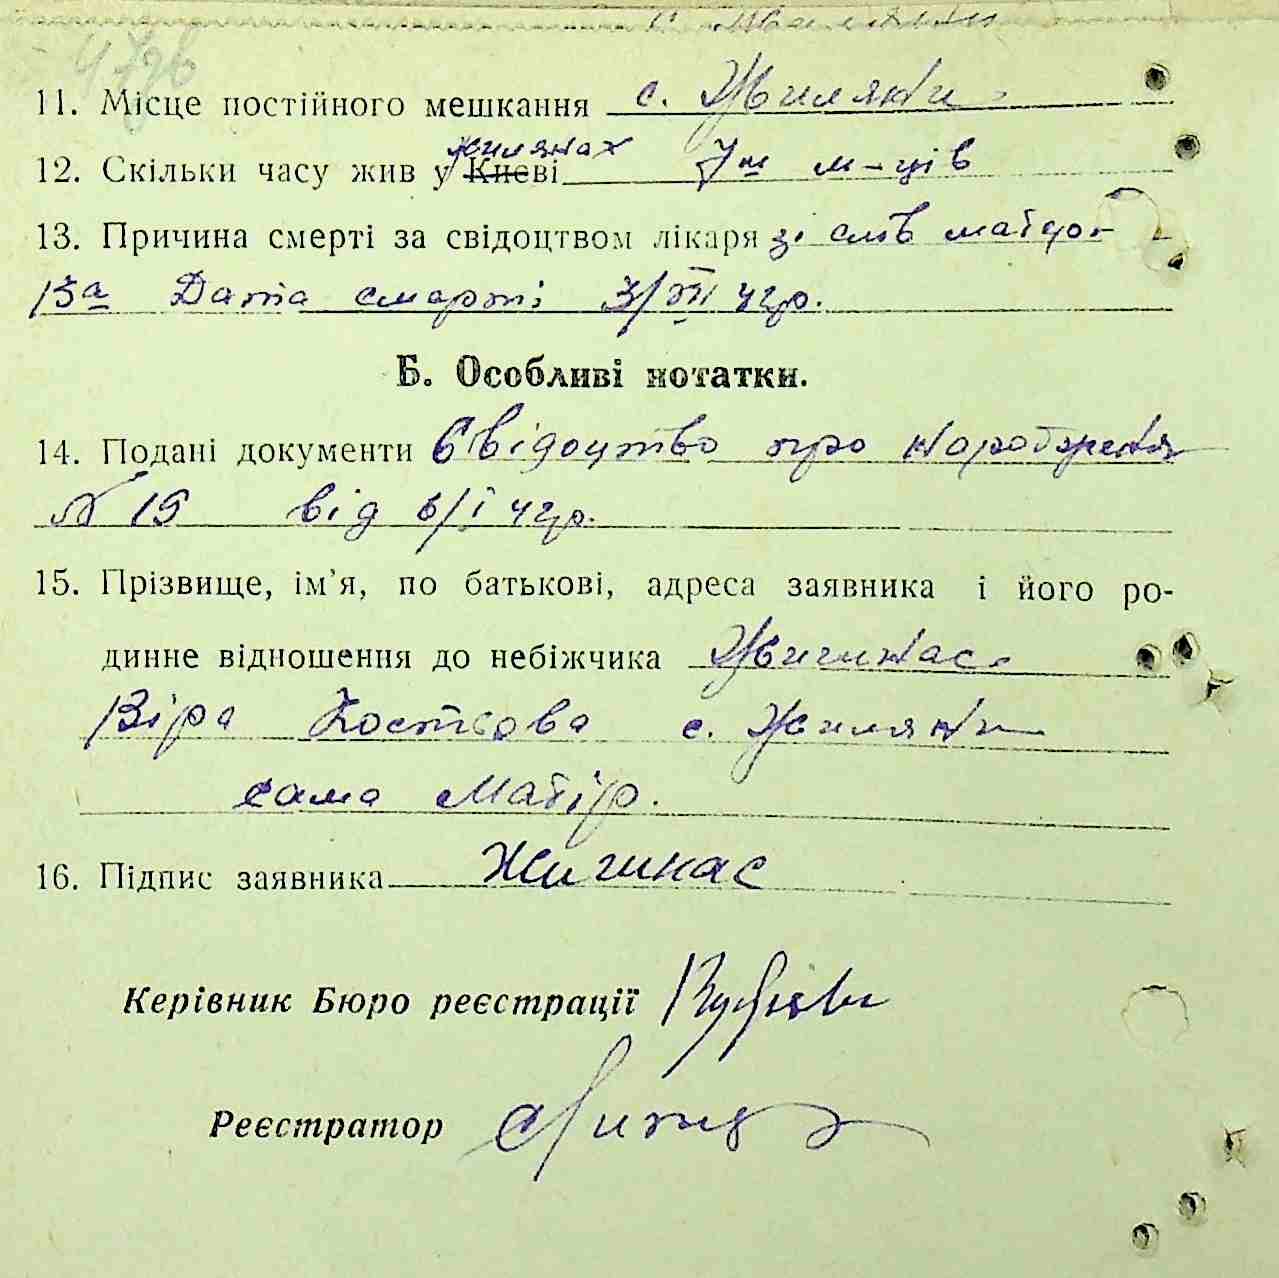 11. Місце постійного мешкання с. Жиляни
Жилянах
12. Скільки часу жив у Києві 7м м-ців
13. Причина смерті за свідоцтвом лікаря зі слів
13а Дата смерті 3/VII 42р.
Б. Особливі нотатки.
14. Подані документи Свідоцтво про народження
№ 15 від 6/I 42р.
15. Прізвище, ім'я, по батькові, адреса заявника і його ро-
динне відношення до небіжчика Жигинас
Віра Костьова с. Жиляни
сама матір.
16. Підпис заявника Жигинас
Керівник Бюро реєстрації
Реєстратор